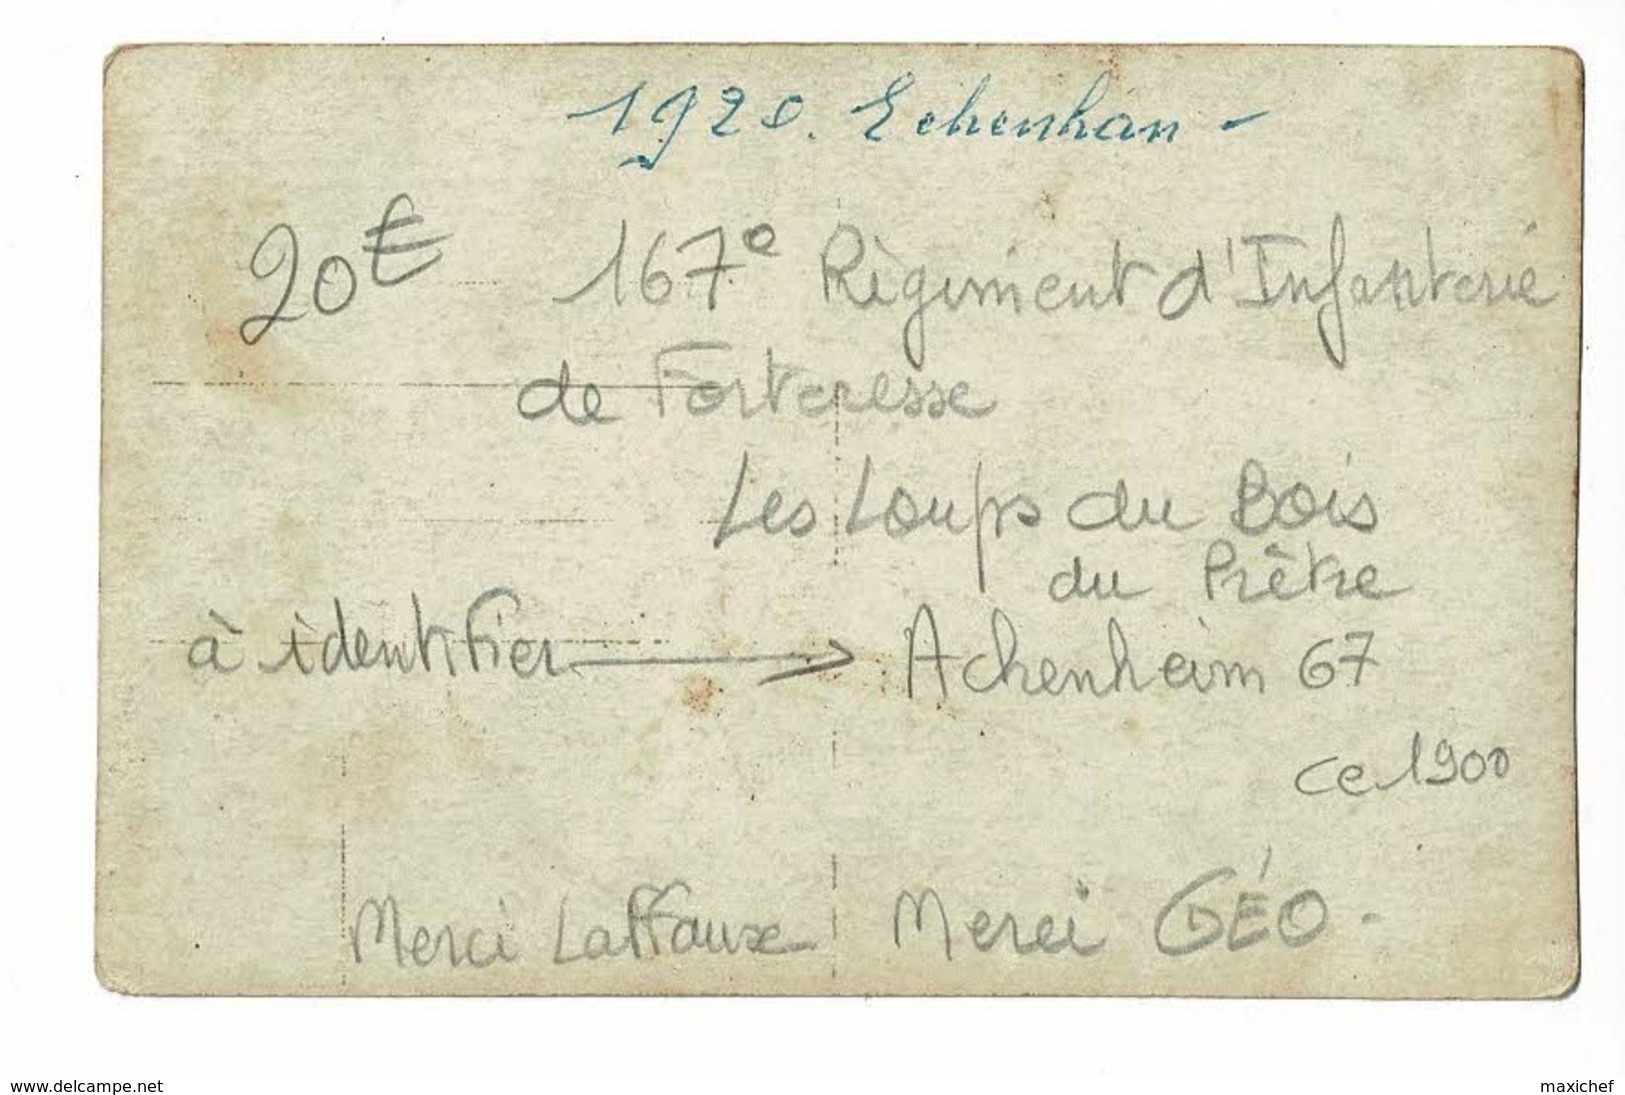 1920. Echenhán -
20€ 167e Règiment d'Infanterie
de Forteresse
Les Loups du Bois
du Prêtre
à identifier → Achenheim 67
ce 1900
Merci Laffaux Merci GÉO -
www.delcampe.net
maxichef